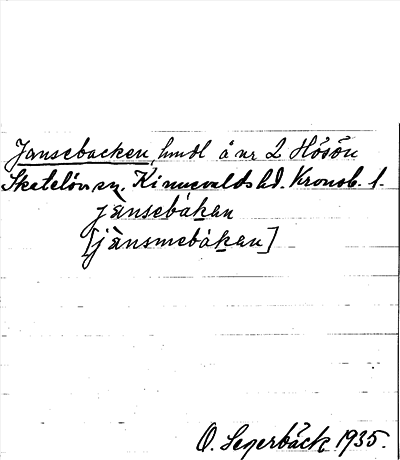 Jansebacken, hmdl å nr 2 Hösön
Skatelöv sn. Kinnevalds hd. Kronob. l.
jànsebákan
[jànsmebákan]
O. Segerbäck 1935.